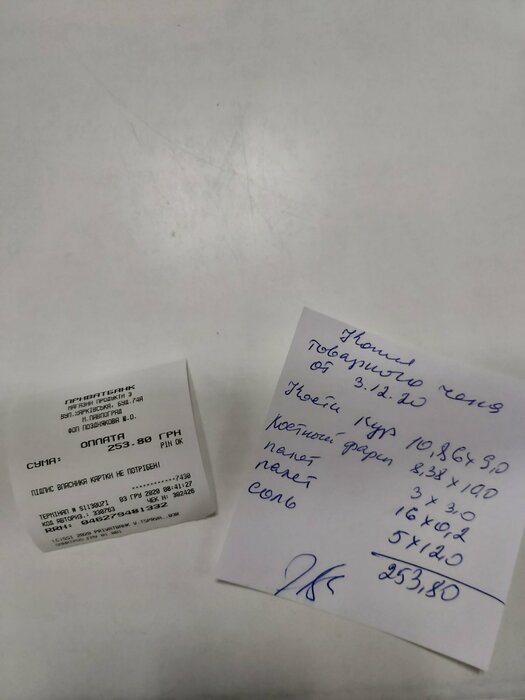 ПРИВАТБАНК
МАГАЗИН ПРОДУКТИ 3
ВУЛ.ХАРКІВСЬКА, БУД.74А
М.ПАВЛОГРАД
ФОП ПОЗДНЯКОВА Ю.О.
ОПЛАТА
СУМА: 253.80 ГРН
PIN OK
ПІДПИС ВЛАСНИКА КАРТКИ НЕ ПОТРІБЕН!
************7430
ТЕРМІНАЛ № S1130U71 03 ГРУ 2020 08:41:27
КОД АВТОРИЗ.: 330763 ЧЕК Н: 302426
RRN: 046279481332
Копия
товарного чека
от 3.12.20
Кости Кур 10,86 х 9,0
Костный фарш 8,38 х 10,0
пакет 3 х 3,0
пакет 16 х 0,2
соль 5 х 12,0
253,80